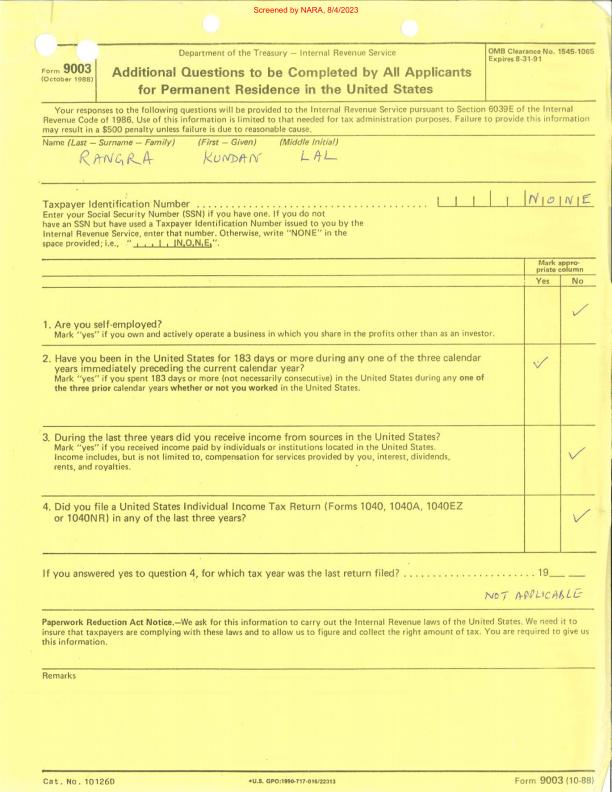 Screened by NARA, 8/4/2023
Form 9003
(October 1988)
Department of the Treasury — Internal Revenue Service
Additional Questions to be Completed by All Applicants
for Permanent Residence in the United States
OMB Clearance No. 1545-1065
Expires 8-31-91
Your responses to the following questions will be provided to the Internal Revenue Service pursuant to Section 6039E of the Internal
Revenue Code of 1986. Use of this information is limited to that needed for tax administration purposes. Failure to provide this information
may result in a $500 penalty unless failure is due to reasonable cause.
Name (Last — Surname — Family) (First — Given) (Middle Initial)
RANGRA KUNDAN LAL
Taxpayer Identification Number N O N E
Enter your Social Security Number (SSN) if you have one. If you do not
have an SSN but have used a Taxpayer Identification Number issued to you by the
Internal Revenue Service, enter that number. Otherwise, write "NONE" in the
space provided; i.e., " N,O,N,E,".
Mark appro-
priate column
Yes No
1. Are you self-employed? ✓
Mark "yes" if you own and actively operate a business in which you share in the profits other than as an investor.
2. Have you been in the United States for 183 days or more during any one of the three calendar
years immediately preceding the current calendar year? ✓
Mark "yes" if you spent 183 days or more (not necessarily consecutive) in the United States during any one of
the three prior calendar years whether or not you worked in the United States.
3. During the last three years did you receive income from sources in the United States?
Mark "yes" if you received income paid by individuals or institutions located in the United States. ✓
Income includes, but is not limited to, compensation for services provided by you, interest, dividends,
rents, and royalties.
4. Did you file a United States Individual Income Tax Return (Forms 1040, 1040A, 1040EZ
or 1040NR) in any of the last three years? ✓
If you answered yes to question 4, for which tax year was the last return filed? 19__ __
NOT APPLICABLE
Paperwork Reduction Act Notice.—We ask for this information to carry out the Internal Revenue laws of the United States. We need it to
insure that taxpayers are complying with these laws and to allow us to figure and collect the right amount of tax. You are required to give us
this information.
Remarks
Cat. No. 10126D *U.S. GPO:1990-717-016/22313 Form 9003 (10-88)